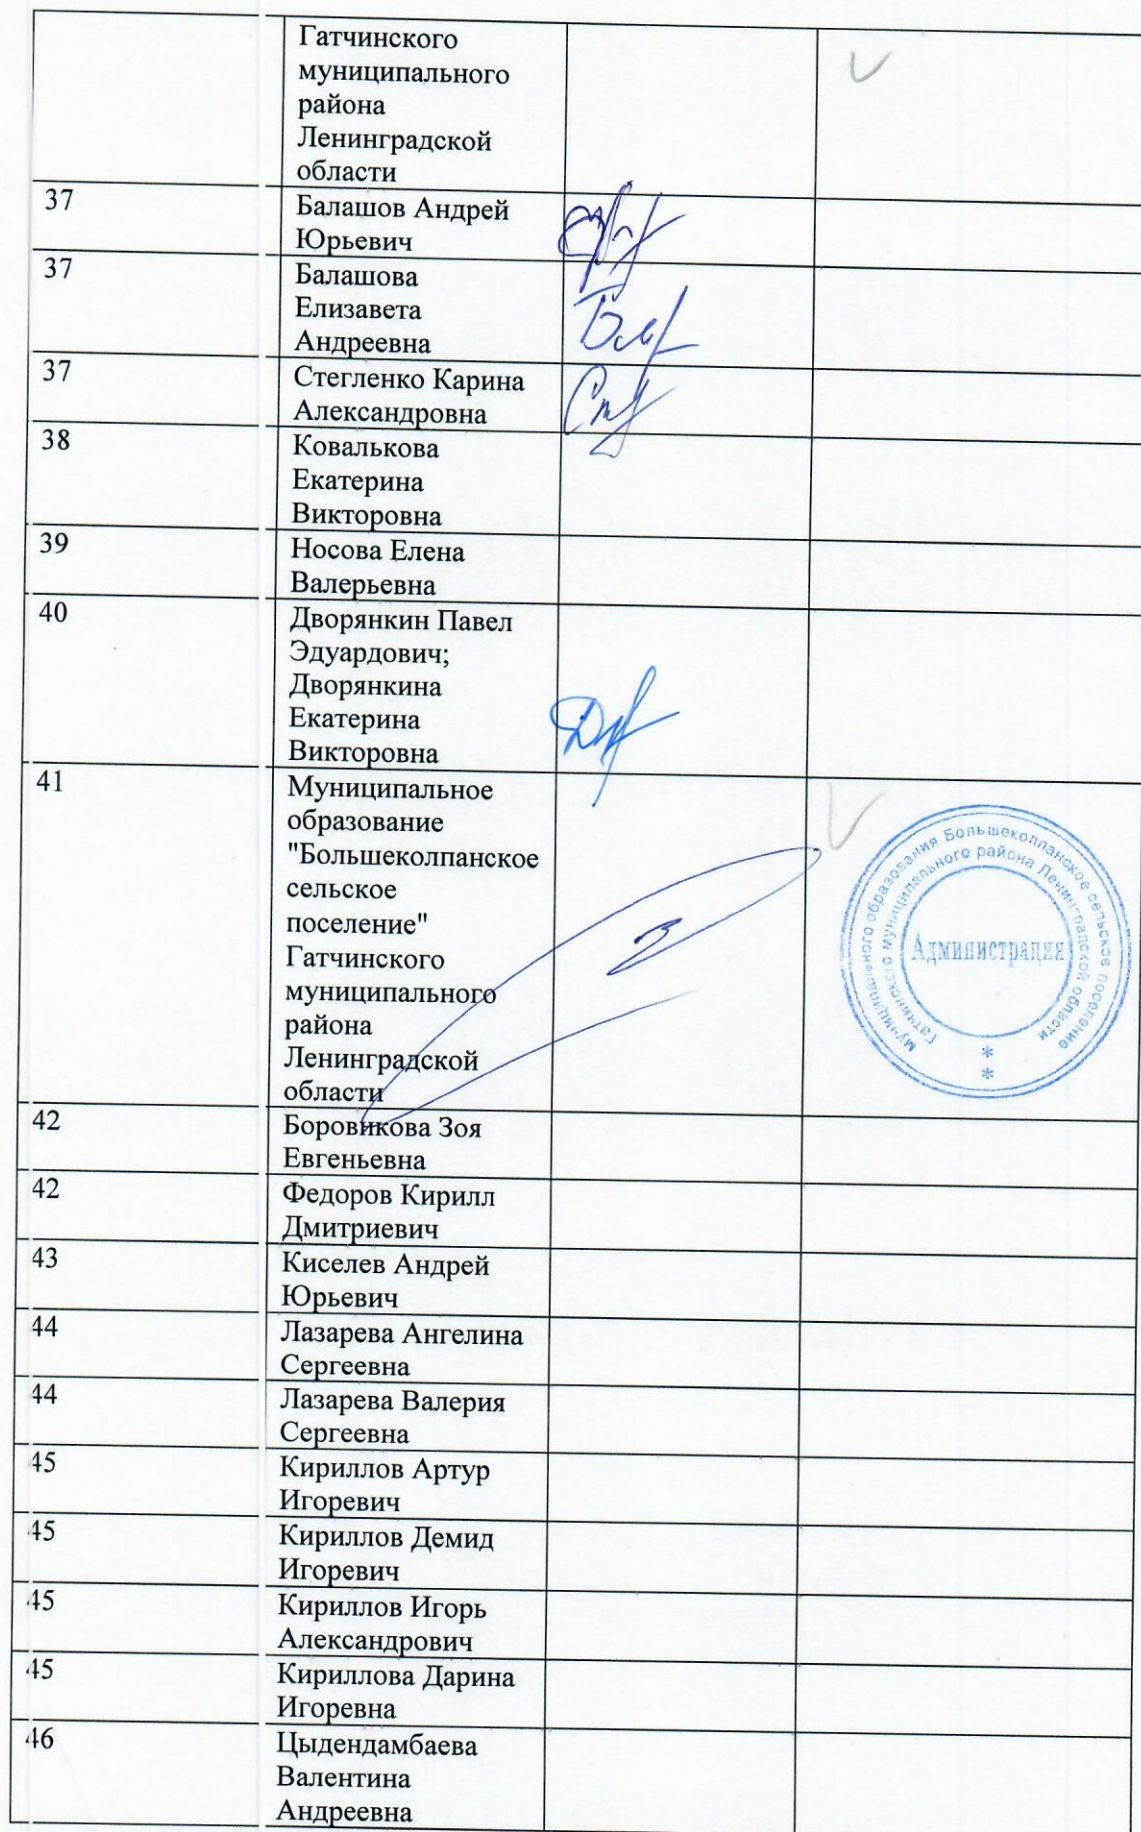 Гатчинского
муниципального
района
Ленинградской
области
37
Балашов Андрей
Юрьевич
37
Балашова
Елизавета
Андреевна
37
Стегленко Карина
Александровна
38
Ковалькова
Екатерина
Викторовна
39
Носова Елена
Валерьевна
40
Дворянкин Павел
Эдуардович;
Дворянкина
Екатерина
Викторовна
41
Муниципальное
образование
"Большеколпанское
сельское
поселение"
Гатчинского
муниципального
района
Ленинградской
области
муниципального образования Большеколпанское сельское поселение
Гатчинского муниципального района Ленинградской области
Администрация
*
*
42
Боровикова Зоя
Евгеньевна
42
Федоров Кирилл
Дмитриевич
43
Киселев Андрей
Юрьевич
44
Лазарева Ангелина
Сергеевна
44
Лазарева Валерия
Сергеевна
45
Кириллов Артур
Игоревич
45
Кириллов Демид
Игоревич
45
Кириллов Игорь
Александрович
45
Кириллова Дарина
Игоревна
46
Цыдендамбаева
Валентина
Андреевна